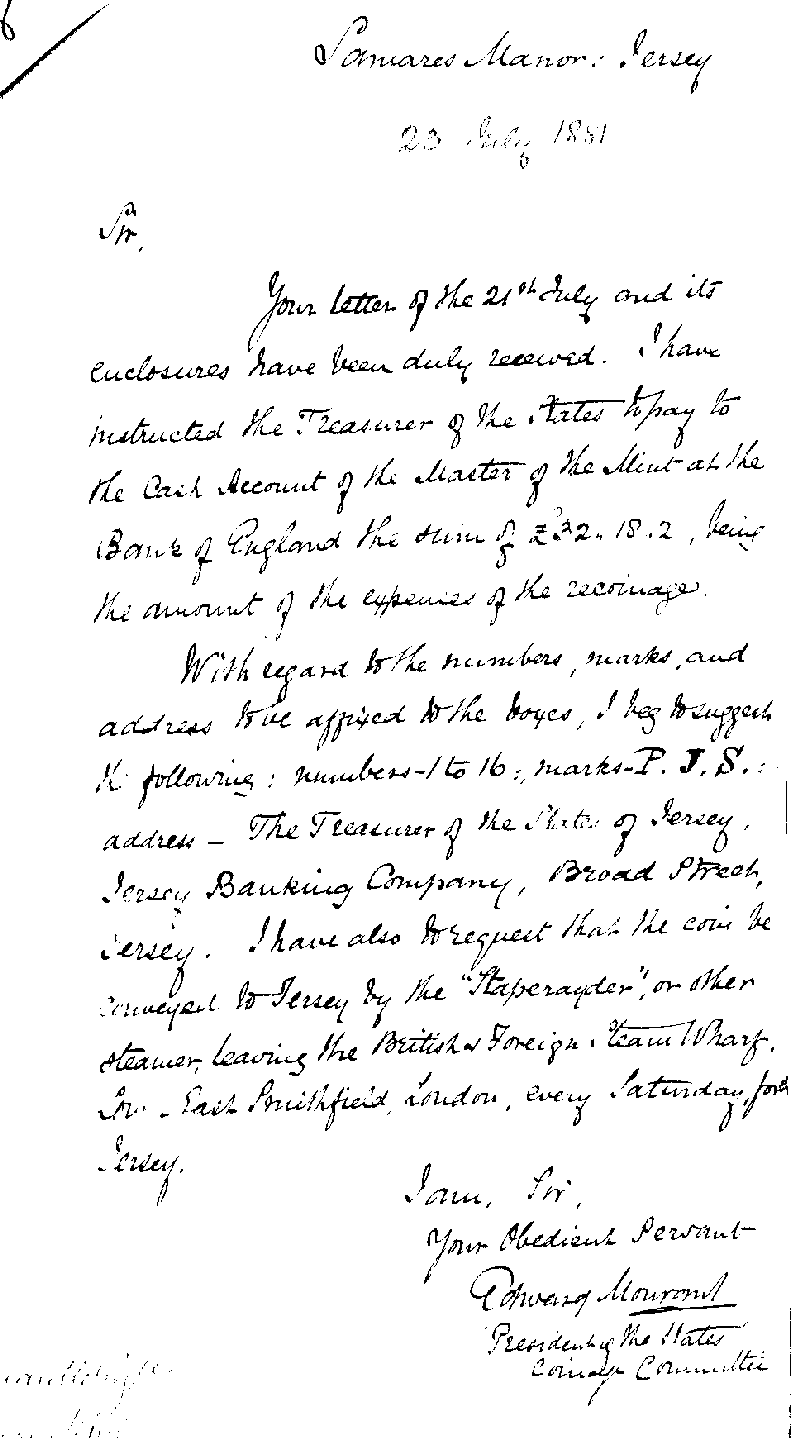 Samares Manor: Jersey
23 July 1881
Sir,
Your letter of the 21st July and its
enclosures have been duly received. I have
instructed the Treasurer of the States to pay to
the Cash Account of the Master of the Mint at the
Bank of England the sum of £32.18.2, being
the amount of the expenses of the recoinage.
With regard to the numbers, marks, and
address to be affixed to the boxes, I beg to suggest
the following: numbers - 1 to 16:, marks - P. J. S.:
address - The Treasurer of the States of Jersey,
Jersey Banking Company, Broad Street,
Jersey. I have also to request that the coin be
conveyed to Jersey by the "Staperayder", or other
steamer, leaving the British & Foreign Steam Wharf,
Low. East Smithfield, London, every Saturday, for
Jersey.
I am, Sir,
Your Obedient Servant
Edward Mourant
President of the States
Coinage Committee